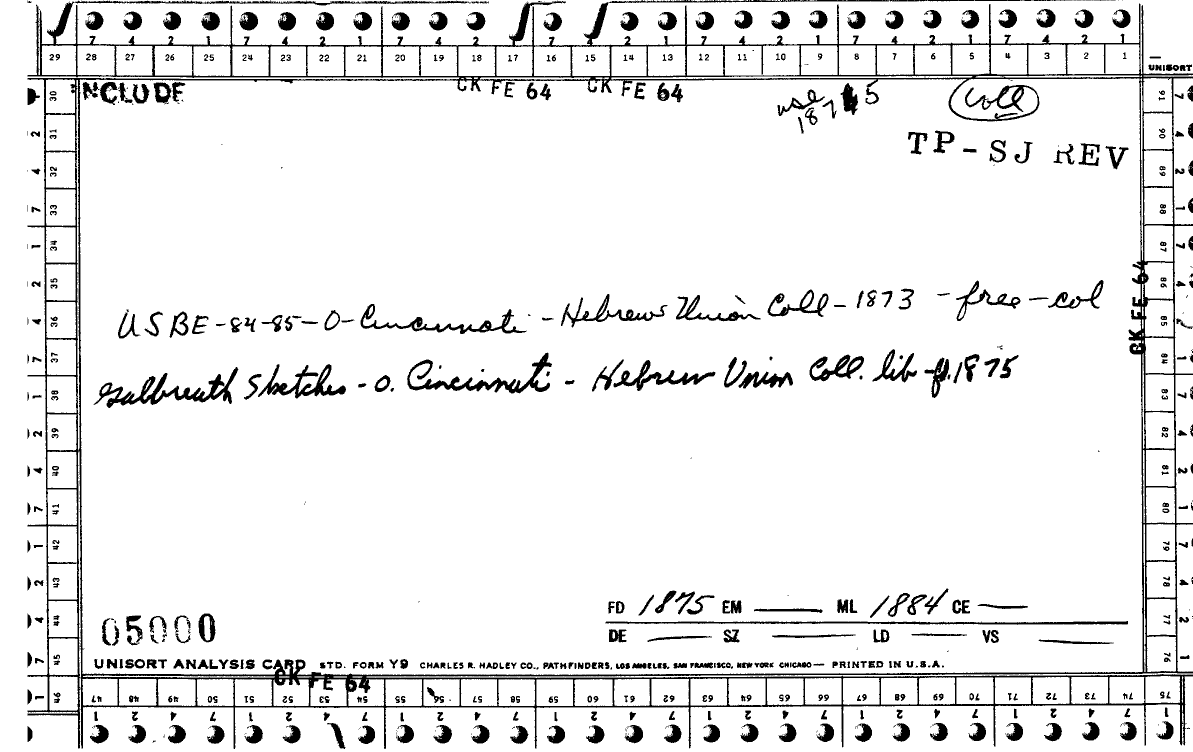 7 4 2 1 7 4 2 1 7 4 2 1 7 4 2 1 7 4 2 1 7 4 2 1
29 28 27 26 25 24 23 22 21 20 19 18 17 16 15 14 13 12 11 10 9 8 7 6 5 4 3 2 1
UNISORT
NCLUDE CK FE 64 CK FE 64 use 1875 Coll
TP-SJ REV
CK FE 64
USBE-84-85-O-Cincinnati-Hebrew Union Coll-1873-free-col
Galbreath Sketches-O. Cincinnati-Hebrew Union Coll. lib-f.1875
FD 1875 EM — ML 1884 CE —
DE — SZ — LD — VS —
05000
UNISORT ANALYSIS CARD STD. FORM Y9 CHARLES R. HADLEY CO., PATHFINDERS, LOS ANGELES, SAN FRANCISCO, NEW YORK CHICAGO — PRINTED IN U.S.A.
CK FE 64
30 31 32 33 34 35 36 37 38 39 40 41 42 43 44 45 46
91 90 89 88 87 86 85 84 83 82 81 80 79 78 77 76
47 48 49 50 51 52 53 54 55 56 57 58 59 60 61 62 63 64 65 66 67 68 69 70 71 72 73 74 75